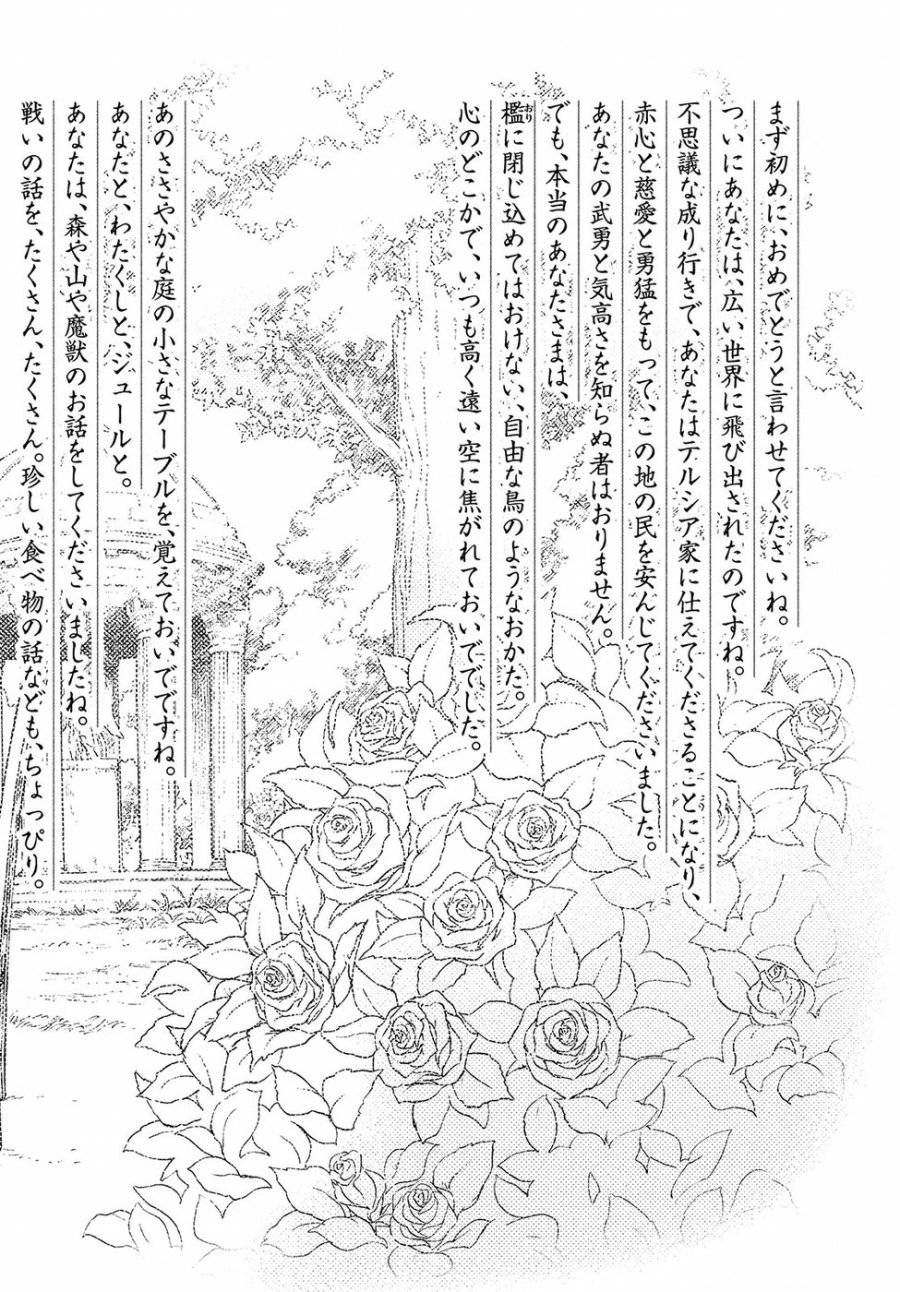 まず初めに、おめでとうと言わせてくださいね。
ついにあなたは、広い世界に飛び出されたのですね。
不思議な成り行きで、あなたはテルシア家に仕えてくださることになり、
赤心と慈愛と勇猛をもって、この地の民を安んじてくださいました。
あなたの武勇と気高さを知らぬ者はおりません。
でも、本当のあなたさまは、
檻に閉じ込めてはおけない、自由な鳥のようなおかた。
おり
心のどこかで、いつも高く遠い空に焦がれておいででした。
あのささやかな庭の小さなテーブルを、覚えておいでですね。
あなたと、わたくしと、ジュールと。
あなたは、森や山や魔獣のお話をしてくださいましたね。
戦いの話を、たくさん、たくさん。珍しい食べ物の話なども、ちょっぴり。